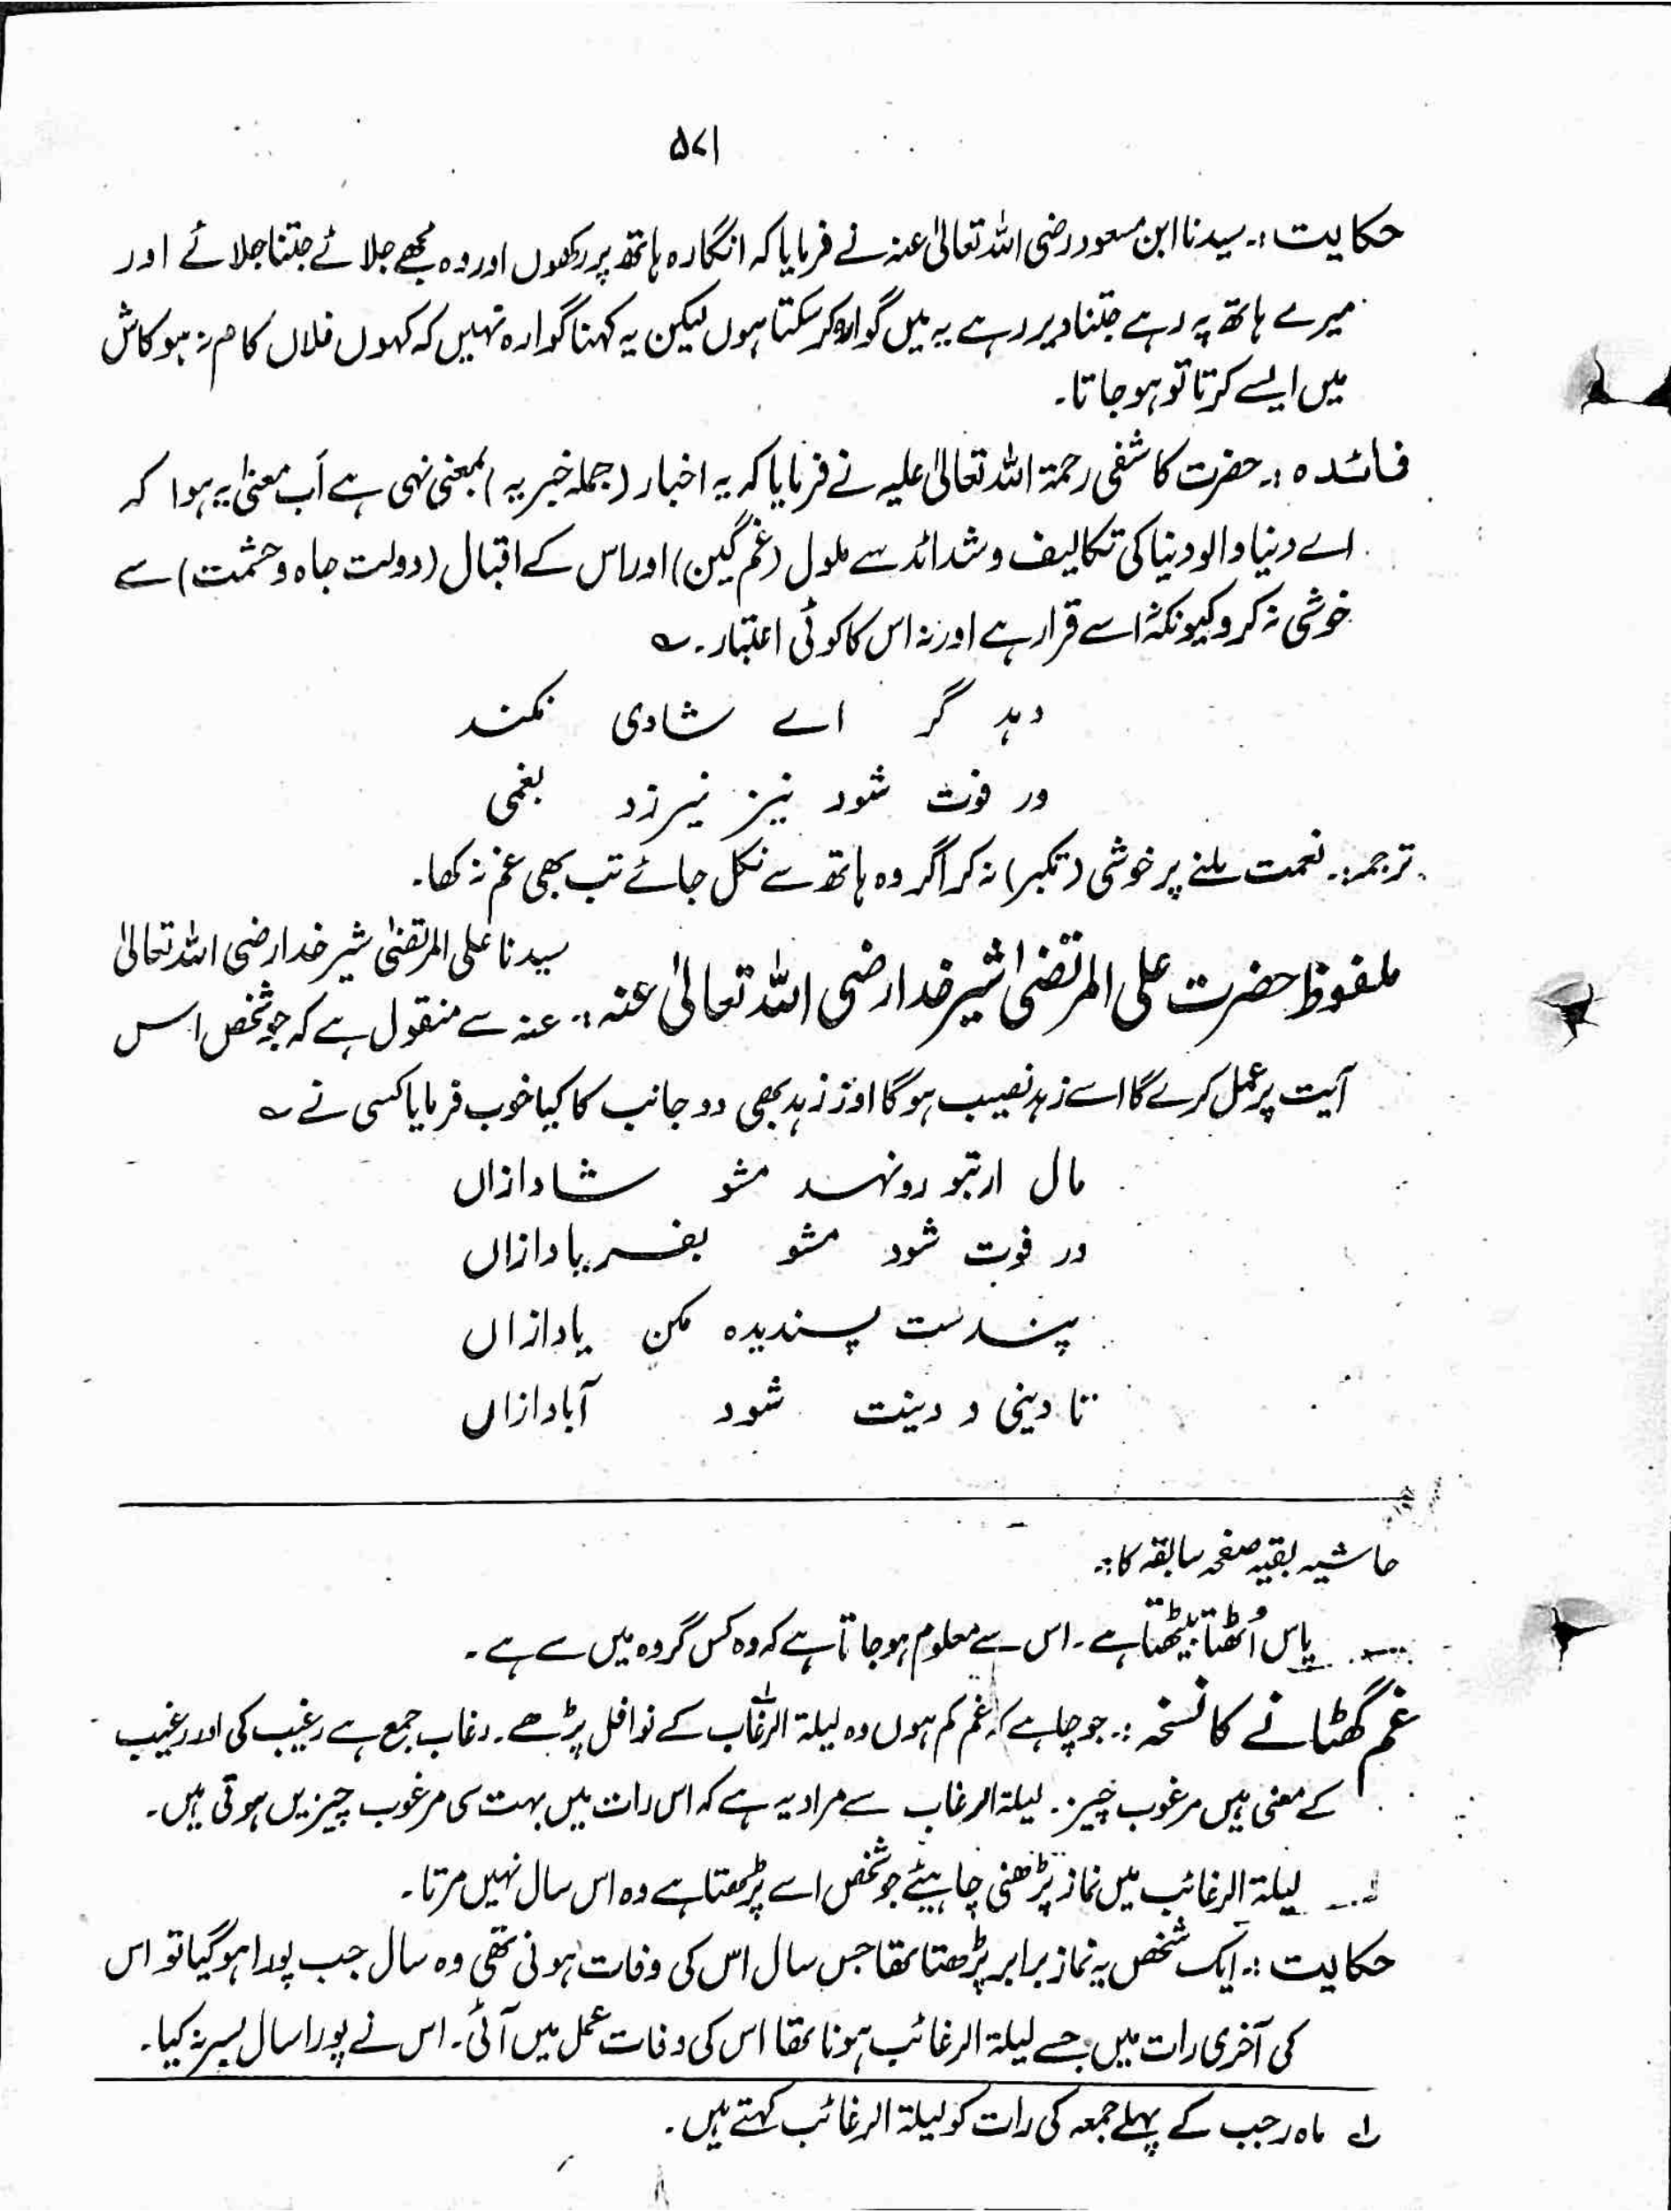 ۵۷۱
حکایت :۔ سیدنا ابن مسعود رضی اللہ تعالیٰ عنہ نے فرمایا کہ انگارہ ہاتھ پر رکھوں اور وہ مجھے جلائے جتنا جلائے اور
میرے ہاتھ پہ رہے جتنا دیر رہے یہ میں گوارہ کر سکتا ہوں لیکن یہ کہنا گوارہ نہیں کہ کہوں فلاں کام نہ ہو کاش
میں ایسے کرتا تو ہو جاتا۔
فائدہ :۔ حضرت کاشفی رحمۃ اللہ تعالیٰ علیہ نے فرمایا کہ یہ اخبار (جملہ خبریہ) بمعنی نہی ہے اَب معنیٰ یہ ہوا کہ
اے دنیا والو دنیا کی تکالیف و شدائد سے ملول (غم گین) اور اس کے اقبال (دولت جاہ و حشمت) سے
خوشی نہ کرو کیونکہ نہ اسے قرار ہے اور نہ اس کا کوئی اعتبار۔ ؎
دہد گر اے شادی نکند
ور فوت شود نیز نیرزد بغمی
ترجمہ :۔ نعمت ملنے پر خوشی (تکبر) نہ کر اگر وہ ہاتھ سے نکل جائے تب بھی غم نہ کھا۔
ملفوظ حضرت علی المرتضیٰ شیر خدا رضی اللہ تعالیٰ عنہ :۔ سیدنا علی المرتضیٰ شیر خدا رضی اللہ تعالیٰ
عنہ سے منقول ہے کہ جو شخص اس
آیت پر عمل کرے گا اسے زہد نصیب ہو گا اور زہد بھی دو جانب کا کیا خوب فرمایا کسی نے ؎
مال ارتبو رونہد مشو شادازاں
ور فوت شود مشو بفریادازاں
پندست پسندیدہ مکن یادازاں
تا دینی و دینت شود آبادازاں
حاشیہ بقیہ صفحہ سابقہ کا :۔
پاس اُٹھتا بیٹھتا ہے۔ اس سے معلوم ہو جاتا ہے کہ وہ کس گروہ میں سے ہے۔
غم گھٹانے کا نسخہ :۔ جو چاہے کہ غم کم ہوں وہ لیلۃ الرغاب کے نوافل پڑھے۔ رغاب جمع ہے رغیب کی اور رغیب
کے معنی ہیں مرغوب چیز۔ لیلۃ الرغاب سے مراد یہ ہے کہ اس رات میں بہت سی مرغوب چیزیں ہوتی ہیں۔
لیلۃ الرغائب میں نماز پڑھنی چاہیئے جو شخص اسے پڑھتا ہے وہ اس سال نہیں مرتا۔
حکایت :۔ ایک شخص یہ نماز برابر پڑھتا تھا جس سال اس کی وفات ہونی تھی وہ سال جب پورا ہو گیا تو اس
کی آخری رات میں جسے لیلۃ الرغائب ہونا تھا اس کی وفات عمل میں آئی۔ اس نے پورا سال بسر نہ کیا۔
لے ماہ رجب کے پہلے جمعہ کی رات کو لیلۃ الرغائب کہتے ہیں۔